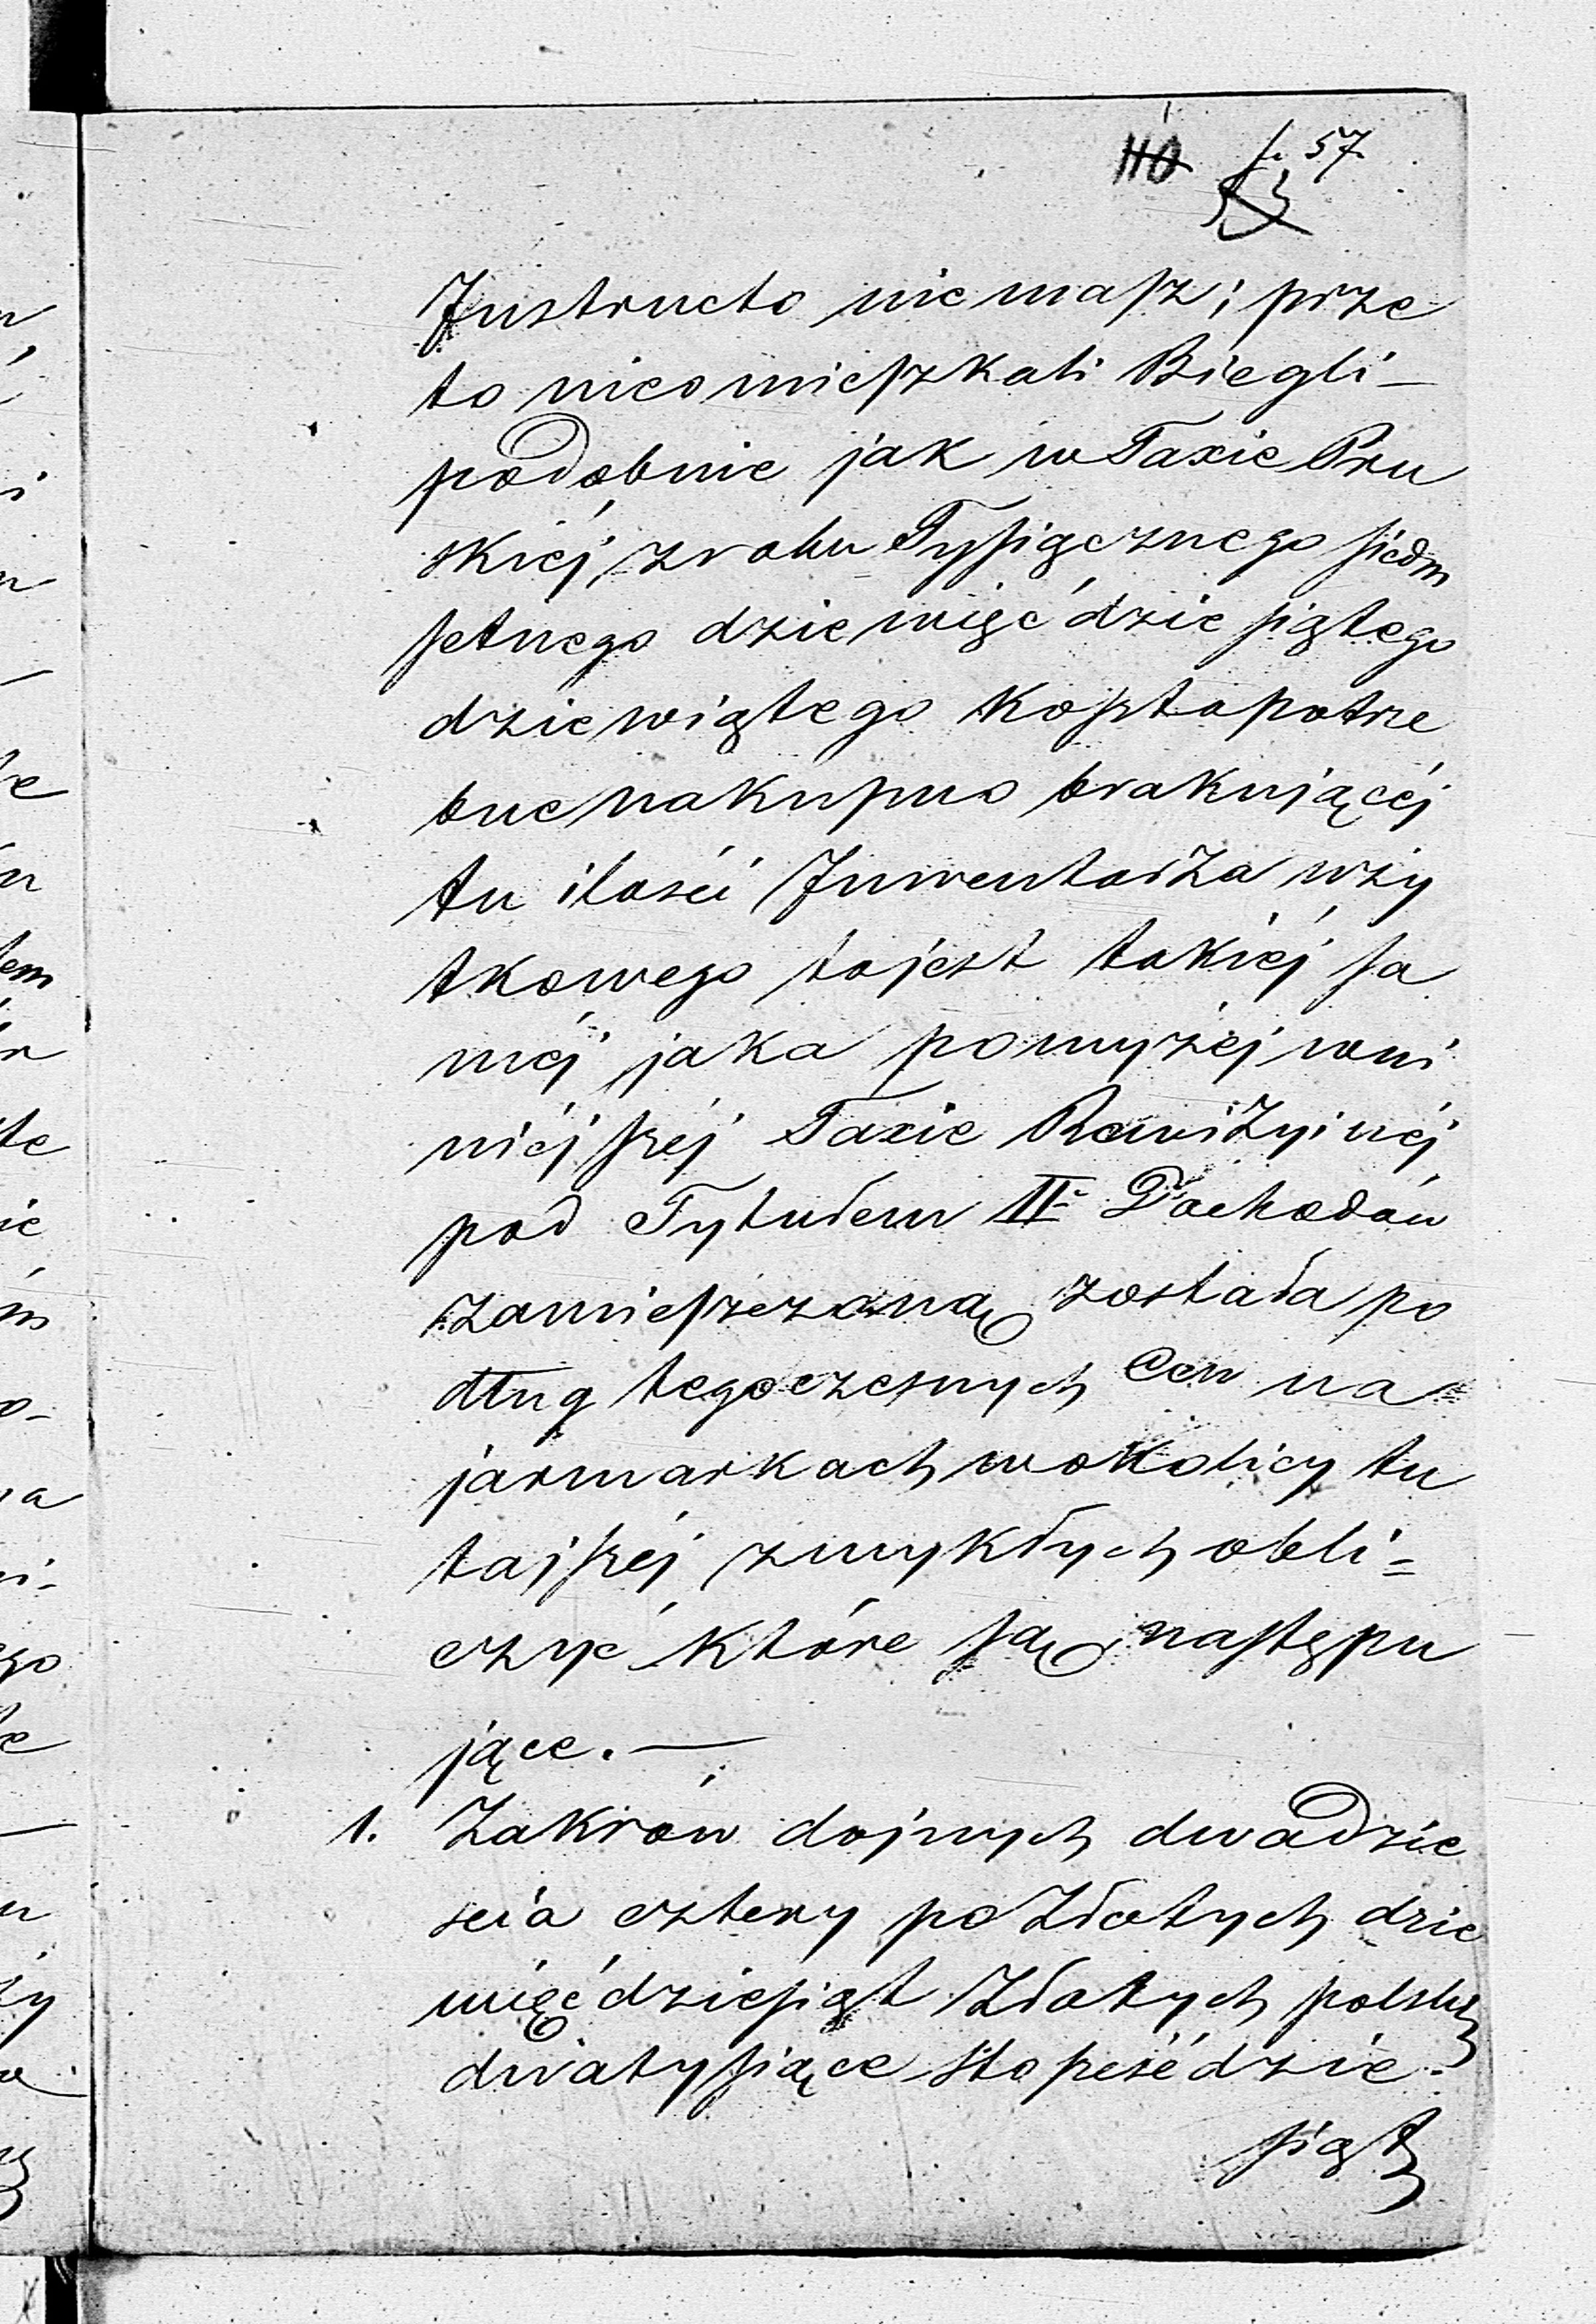 110 f. 57
53
Instructo nie masz; prze
to nieomieszkali Biegli –
podobnie jak w Taxie Pru
skiéj z roku Tysiącznego siedm
setnego dziewięćdziesiątego
dziewiątego koszta potrze
bne na kupno brakującéj
tu ilości Inwentarza uży
tkowego to jest takiéj sa
méj jaka powyżéj w ni
niéjszéj Taxie Rewizyinéj
pod Tytułem II. Dochodów
zamieszczoną została po
dług tegoczesnych Cen na
jarmarkach w okolicy tu
tajszéj zwykłych obli=
czyć które są następu
jące. —
1. Za krów dojnych dwadzie
scia cztery po Złotych dzie
więćdziesiąt Złotych polskich
dwa tysiące sto sześćdzie
siąt